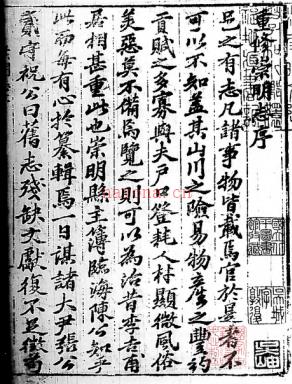 重修崇明志序
邑之有志凡諸事物皆載焉官於是者不
可以不知盖其山川之險易物產之豐約
貢賦之多寡與夫户口登耗人材顯微風俗
美惡莫不備焉覽之則可以為治昔李吉甫
居相甚重此也崇明縣主簿臨海陳公知乎
此而每有心於纂輯焉一日謀諸大尹張公
貳守祝公曰舊志殘缺文獻復不足徵苟